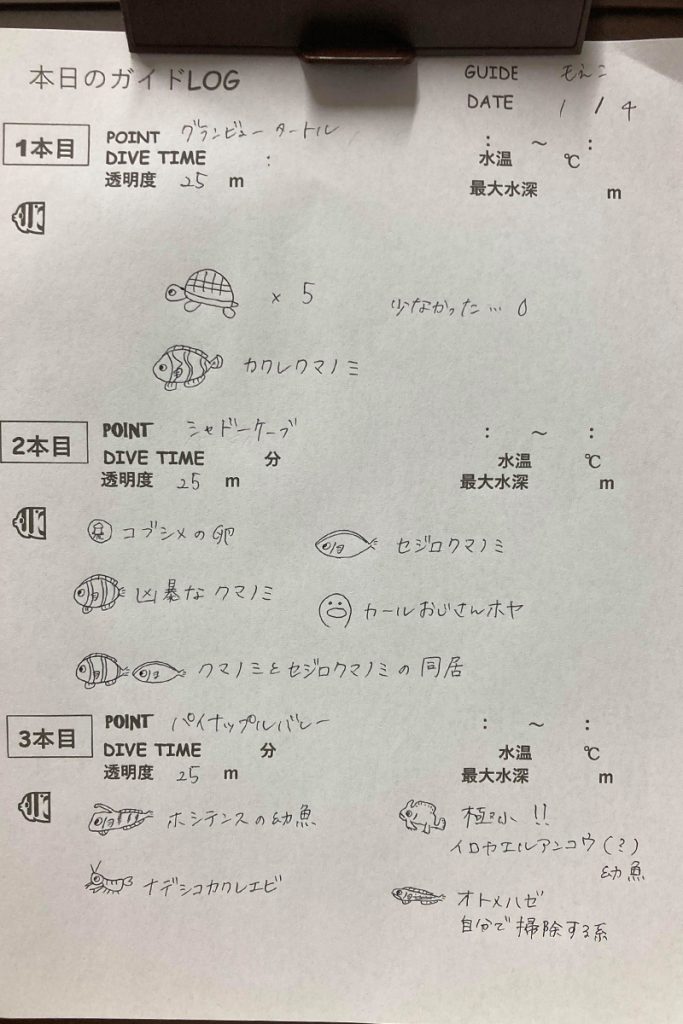 本日のガイドLOG
GUIDE もえこ
DATE 1 / 4
1本目
POINT グランビュー タートル
DIVE TIME :
透明度 25 m
: ～ :
水温 ℃
最大水深 m
× 5
少なかった…
カクレクマノミ
2本目
POINT シャドーケーブ
DIVE TIME 分
透明度 25 m
: ～ :
水温 ℃
最大水深 m
コブシメの卵
セジロクマノミ
凶暴なクマノミ
カールおじさんホヤ
クマノミとセジロクマノミの同居
3本目
POINT パイナップルバレー
DIVE TIME 分
透明度 25 m
: ～ :
水温 ℃
最大水深 m
ホシテンスの幼魚
極小!!
イロカエルアンコウ(?)
幼魚
ナデシコカクレエビ
オトメハゼ
自分で掃除する系